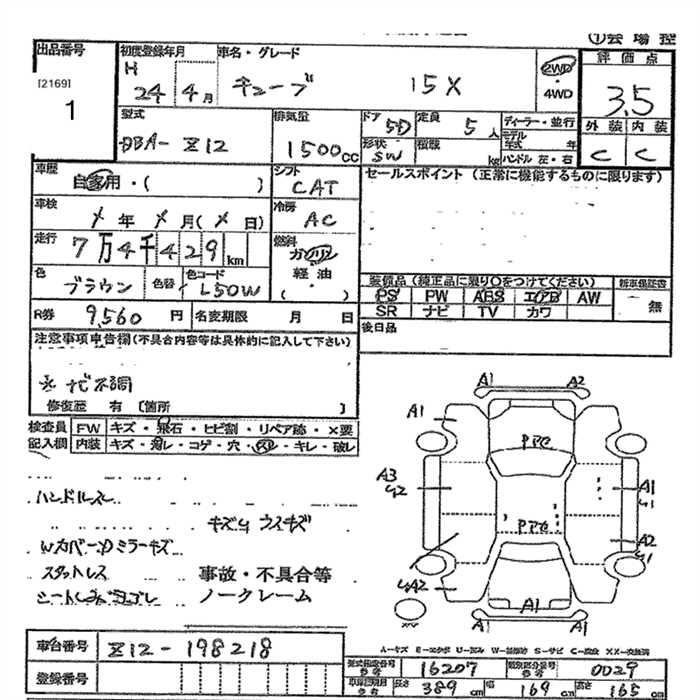 ①会場控
出品番号
[2169]
1
初度登録年月
H
24 4月
車名・グレード
キューブ 15X
2WD
・
4WD
評価点
3.5
外装 内装
C C
型式
DBA-Z12
排気量
1500cc
ドア
5D
定員
5人
形状
SW
積載
kg
ディーラー・並行
モデル
年式 年
ハンドル 左・右
車歴
自家用・( )
シフト
CAT
セールスポイント (正常に機能するものに限ります)
車検
年 月(日)
冷房
AC
走行
7万4千429km
燃料
ガソリン
軽油
( )
色
ブラウン
色替
色コード
L50W
装備品 (純正品に限り〇をつけてください)
新車保証書
PS PW ABS エアB AW
SR ナビ TV カワ
無
R券 9,560円
名変期限 月 日
後日品
注意事項申告欄(不具合内容等は具体的に記入して下さい)
ナビ不調
修復歴 有 [箇所 ]
検査員
記入欄
FW キズ・飛石・ヒビ割・リペア跡・×要
内装 キズ・汚レ・コゲ・穴・スレ・キレ・破レ
ハンドルスレ
キズ凹 ウスキズ
Wカバー・Dミラーキズ
スタットレス
事故・不具合等
ノークレーム
A1 A2
A1
Pアセ
A3
A1
Pアセ
A2
A2
A1 A1
車台番号
Z12-198218
登録番号
型式指定番号
参考
16207
類別区分番号
参考
0029
長さ
389cm
幅
169cm
高さ
165cm